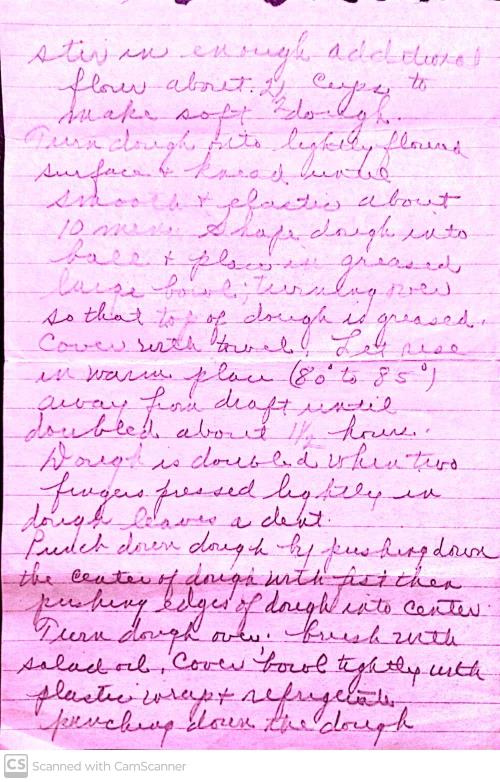 stir in enough additional
flour about 2 1/2 cups to
make soft dough.
Turn dough onto lightly flound
surface + knead until
smooth + elastic about
10 min. Shape dough into
ball + place in greased
large bowl; turning over
so that top of dough is greased.
Cover with towel. Let rise
in warm place (80° to 85°)
away from draft until
doubled about 1 1/2 hours.
Dough is doubled when two
fingers pressed lightly in
dough leaves a dent.
Punch down dough by pushing down
the center of dough with fist then
pushing edges of dough into center
Turn dough over; brush with
salad oil. Cover bowl tightly with
plastic wrap + refrigerate
punching down the dough
CS Scanned with CamScanner